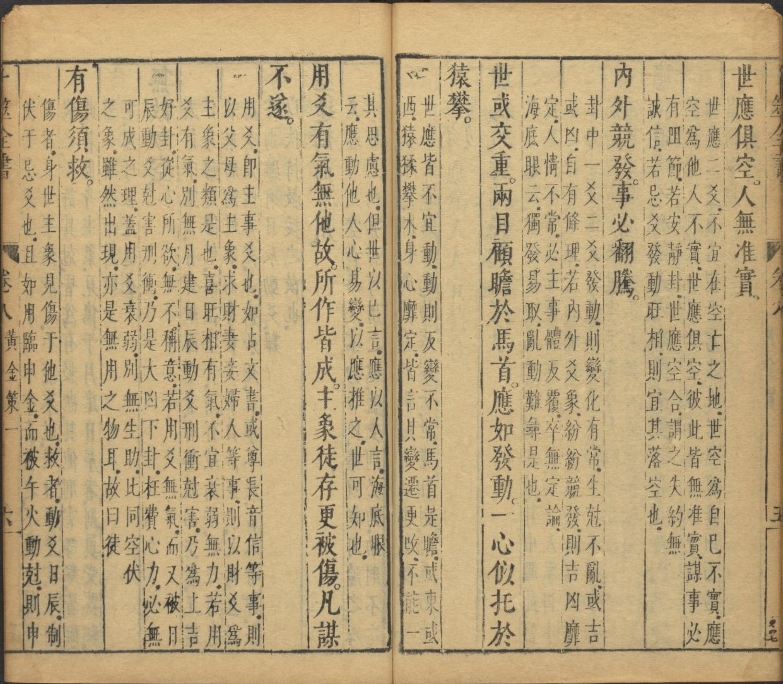 世應俱空。人無准實。
世應二爻不宜在空亡之地世空爲自已不實應
空爲他人不實世應俱空彼此皆無准實謀事必
有阻節若安靜卦世應空合謂之失約無
誠信若忌爻發動旺相則宜其落空也
內外競發。事必翻騰。
卦中一爻二爻發動則變化有常生尅不亂或吉
或凶自有條理若內外爻象紛紛競發則吉凶靡
定人情不常必主事體反覆卒無定論
海底眼云獨發易取亂動難尋是也
世或交重。兩目顧瞻於馬首。應如發動。一心似托於
猿攀。
世應皆不宜動動則反變不常馬首是瞻或東或
西猿猱攀木身心靡定皆言其變遷更改不能一
其思慮也但世以已言應以人言海底眼
云應動他人心易變以應推之世可知也
用爻有氣無他故。所作皆成。主象徒存更被傷。凡謀
不遂。
用爻卽主事爻也如占文書或尊長音信等事則
以父母爲主象求財妻妾婦人等事則以財爻爲
主象之類是也喜旺相有氣不宜衰弱無力若用
爻有氣別無月建日辰動爻刑衝尅害乃爲上吉
好卦從心所欲無不稱意若用爻無氣而又被日
辰動爻尅害刑衝乃是大凶下卦枉費心力必無
可成之理蓋用爻衰弱別無生助比同空伏
之象雖然出現亦是無用之物耳故曰徒
有傷須救。
傷者身世主象見傷于他爻也救者動爻日辰制
伏于忌爻也且如用臨申金而被午火動尅則申
全書
卷八
黃金策一
六
五